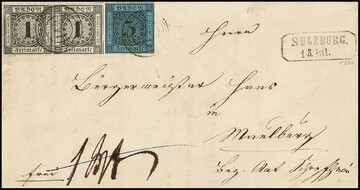 BADEN BADEN BADEN
1 1 3
Freimarke Freimarke Freimarke
SULZBURG.
13 Jul.
Herrn
Bürgermeister
in
Maulburg
Bez. Amt Schopfheim
frei